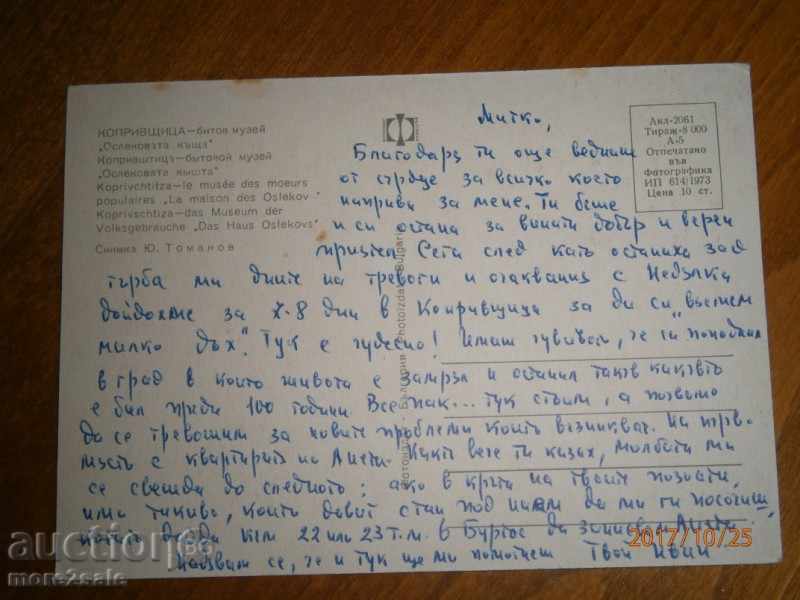 КОПРИВЩИЦА — битов музей
„Ослековата къща“
Копривштиц — битовой музей
„Ослековята кышта“
Koprivchtitza — le musée des moeurs
populaires „La maison des Oslekov“
Koprivschtiza — das Museum der
Volksgebräuche „Das Haus Oslekovs“
Снимка Ю. Томанов
България Photoizdat Bulgar
Акл-2061
Тираж-8 000
А-5
Отпечатано
във
Фотографика
ИП 614/1973
Цена 10 ст.
Митко,
Благодаря ти още веднъж
от сърдце за всичко което
направи за мене. Ти беше
и си остана за винаги добър и верен
приятел. Сега след като останаха зад
гърба ми дните на тревоги и очаквания с Недялка
дойдохме за 7-8 дни в Копривщица за да си „вземем
малко дъх“. Тук е чудесно! Имаш чувство, че си попаднал
в град в който живота е замрял и останал такъв какъвто
е бил преди 100 години. Все пак... тук стоим, а почваме
да се тревожим за новите проблеми които възникват. На първо
място с квартирата на Анети. Както вече ти казах, молбата ми
се свежда до следното: ако в кръга на твоите познати,
има такива, които дават стаи под наем да ми ги посочиш,
когато дойда към 22 или 23 т.м. в Бургас да запиша Анети.
Надявам се, че и тук ще ми помогнеш Твой Иван
2017/10/25
auction
more2sale